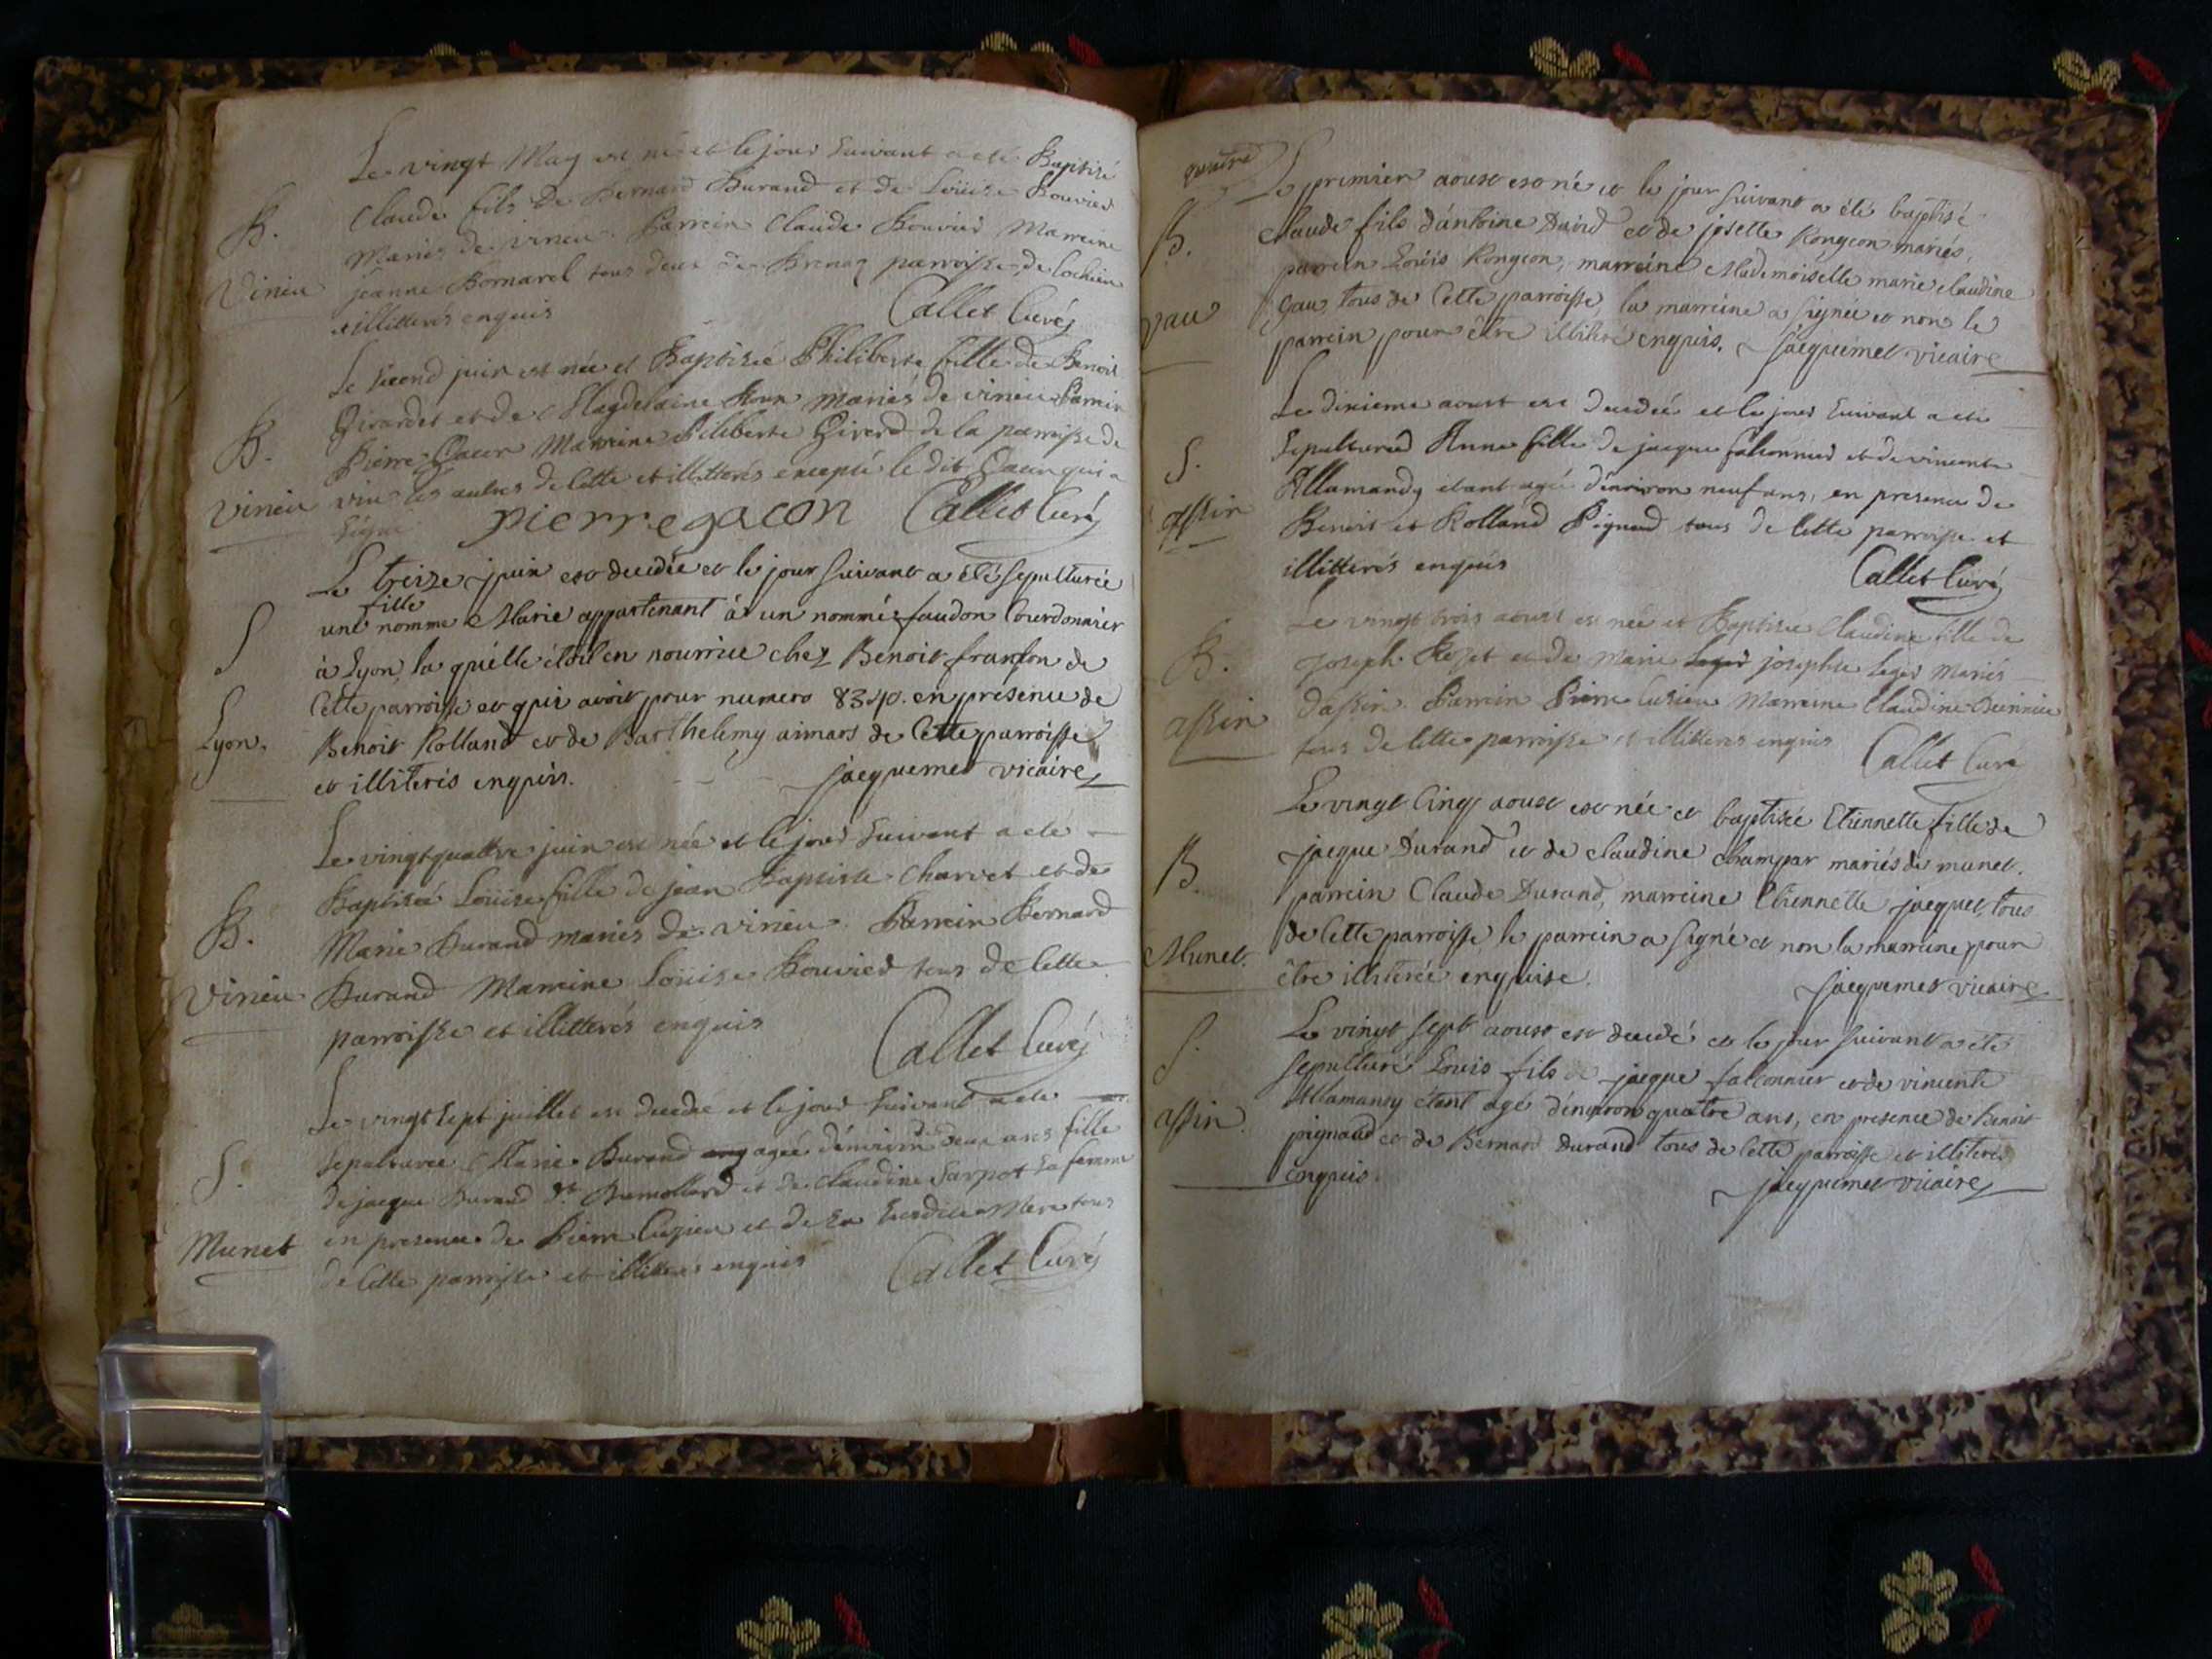 Le vingt May est né et le jour suivant a eté Baptisé
B.
Claude fils de Bernard Durand et de Loüise Bouvier
Mariés de virieu. Parrein Claude Bouvier Marreine
Virieu
jeanne Bornarel tous deux de Brenaz parroisse de lochieu
et illitterés enquis
Callet Curé
Le second juin est née et Baptisée Philiberte fille de Benoit
B.
Girardet et de Magdelaine Roux mariés de virieu Parrein
Pierre Gacon Marreine Philiberte Girerd de la parroisse de
Virieu
vieu les autres de Cette et illitterés excepté le dit Gacon qui a
signé
pierre gacon
Callet Curé
Le treize juin est decedée et le jour suivant a été sepulturée
fille
une nomme Marie appartenant à un nommé faudon Courdonnier
S
à Lyon, la quelle étoit en nourrice chez Benoit franson de
Cette parroisse et qui avoit pour numero 8340. en presence de
Lyon.
Benoit Rolland et de Barthelemy aimars de Cette parroisse
et illiterés enquis.
jacquemet vicaire
Le vingtquattre juin est née et le jour suivant a eté
Baptisée Loüise fille de jean Baptiste Charvet et de
B.
Marie Durand mariés de virieu. Parrein Bernard
Virieu
Durand Marreine Loüise Bouvier tous de Cette
parroisse et illitterés enquis
Callet Curé
Le vingt sept juillet est decedée et le jour suivant a eté
sepulturée Marie Durand agée d'environ deux ans fille
S.
de jacque Durand dt Dumollard et de Claudine Sarpot sa femme
Munet
en presence de Pierre Cuzieu et de sa susditte Mere tous
de Cette parroisse et illitterés enquis
Callet Curé
quatre
Le premier aoust est né et le jour suivant a été baptisé
B.
claude fils d'antoine David et de josette Rongeon mariés,
parrein Loüis Rongeon, marreine Mademoiselle marie claudine
vau
Gau, tous de Cette parroisse, la marreine a signée et non le
parrein pour être illiteré enquis.
jacquemet vicaire
Le dixieme aoust est decedée et le jour suivant a eté
S.
sepulturée Anne fille de jacque falconnier et de vincente
Allamandy etant agée d'environ neuf ans, en presence de
assin
Benoit et Rolland Pignaud tous de Cette parroisse et
illitterés enquis
Callet Curé
Le vingt trois aoust est née et Baptisée Claudine fille de
B.
Joseph Rezet et de Marie josephte leger Mariés
assin
d'assin. Parrein Pierre Cuzieu Marreine Claudine
tous de Cette parroisse et illitterés enquis
Callet Curé
Le vingt Cinq aoust est née et baptisée Etiennette fille de
B.
jacque Durand et de claudine champar mariés de munet.
parrein Claude Durand, marreine Etiennette jacquet, tous
Munet.
de Cette parroisse, le parrein a signé et non la marreine pour
être illiterée enquise.
jacquemet vicaire
Le vingt sept aoust est decedé et le jour suivant a eté
S.
sepulturé Louis fils de jacque falconnier et de vincente
Allamandy étant agé d'environ quatre ans, en presence de Benoit
assin.
pignaud et de Bernard Durand tous de Cette parroisse et illiterés
enquis.
jacquemet vicaire